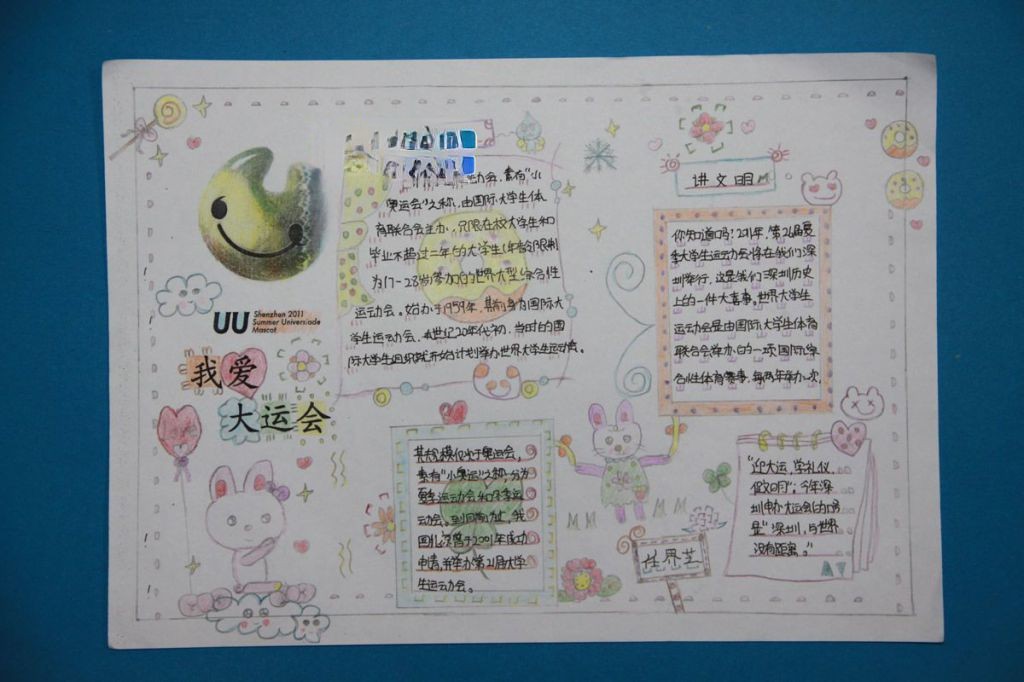 UU
Shenzhen 2011
Summer Universiade
Mascot
我爱
大运会
运动会,素有"小
奥运会"之称,由国际大学生体
育联合会主办,只限在校大学生和
毕业不超过二年的大学生(年龄限制
为17-28岁)参加的世界大型综合性
运动会。始办于1959年,其前身为国际大
学生运动会,
本世纪20年代初,当时的国
际大学生组织就开始计划举办世界大学生运动会。
讲文明
你知道吗?2011年,第26届夏
季大学生运动会将在我们深
圳举行,这是我们深圳历史
上的一件大喜事。世界大学生
运动会是由国际大学生体育
联合会举办的一项国际综
合性体育赛事,每两年举办一次,
其规模仅次于奥运会,
素有"小奥运"之称,分为
夏季运动会和冬季运
动会。到目前为止,我
国北京曾于2001年成功
申请并举办第21届大学
生运动会。
世界
"迎大运,学礼仪,
做文明";今年深
圳申办大运会的口号
是"深圳,与世界
没有距离。"